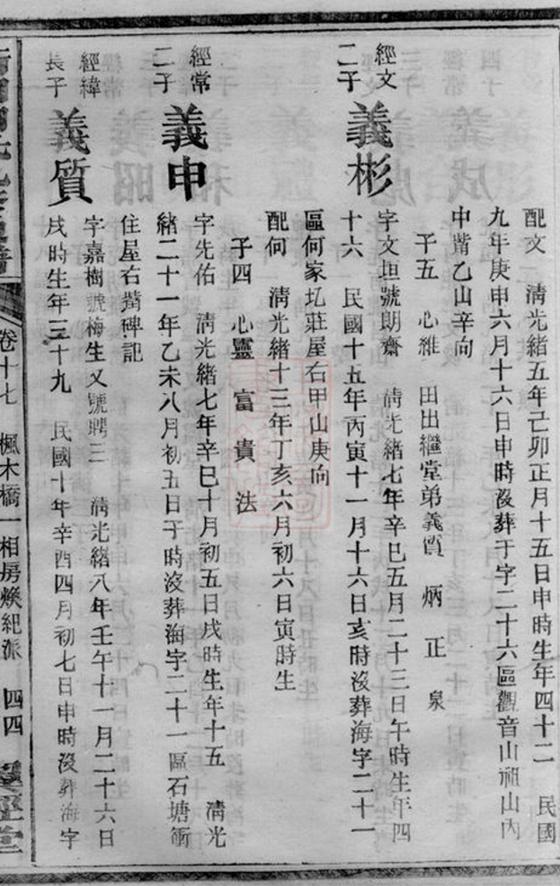 配文 清光緒五年己卯正月十五日申時生年四十二 民國
九年庚申六月十六日申時沒葬于字二十六區觀音山祖山內
中嵴乙山辛向
子五 心維 田出繼堂弟義質 炳 正 泉
經文
二子
義彬
字文垣號朗齋 清光緒七年辛巳五月二十三日午時生年四
十六 民國十五年丙寅十一月十六日亥時沒葬海字二十一
區何家圠莊屋右甲山庚向
配何 清光緒十三年丁亥六月初六日寅時生
子四 心靈 富 貴 法
經常
二子
義申
字先佑 清光緒七年辛巳十月初五日戌時生年十五 清光
緒二十一年乙未八月初五日子時沒葬海字二十一區石塘衝
住屋右嵴碑記
經緯
長子
義質
字嘉樹號梅生又號聘三 清光緒八年壬午十一月二十六日
戌時生年三十九 民國十年辛酉四月初七日申時沒葬海字
卷十七 楓木橋一相房煥紀派 四四